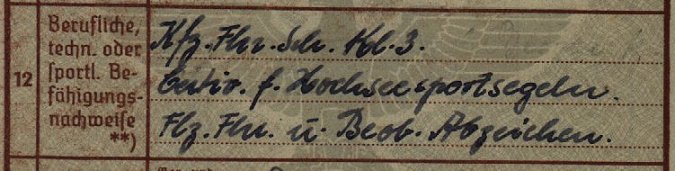 12
Berufliche,
techn. oder
sportl. Be-
fähigungs-
nachweise
**)
Kfz. Fhr. Sch. Kl. 3.
f. Hochseesportsegeln.
Flz. Fhr. u. Beob. Abzeichen.